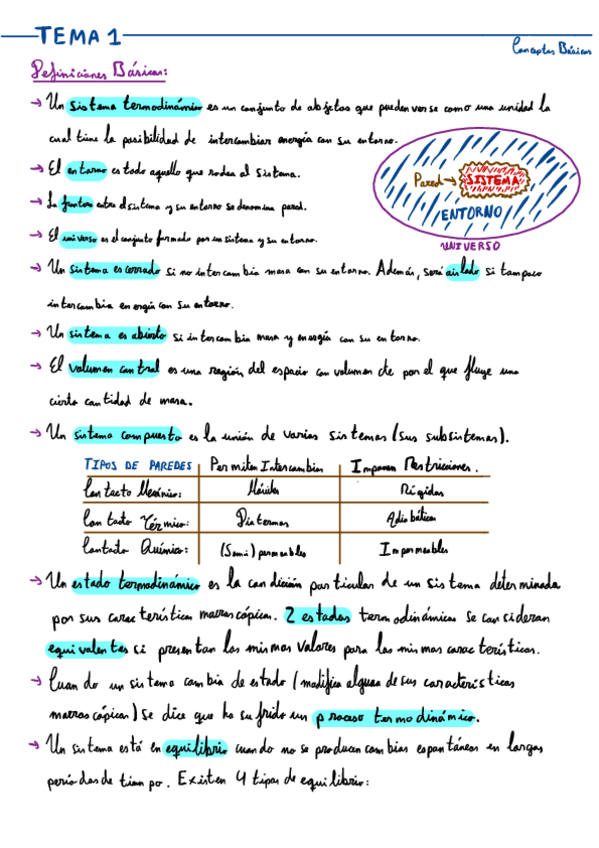 TEMA 1
Conceptos Básicos
Definiciones Básicas:
→ Un sistema termodinámico es un conjunto de objetos que pueden verse como una unidad la
cual tiene la posibilidad de intercambiar energía con su entorno.
→ El entorno es todo aquello que rodea al sistema.
→ La frontera entre el sistema y su entorno se denomina pared.
→ El universo es el conjunto formado por un sistema y su entorno.
Pared → SISTEMA
ENTORNO
UNIVERSO
→ Un sistema es cerrado si no intercambia masa con su entorno. Además, será aislado si tampoco
intercambia energía con su entorno.
→ Un sistema es abierto si intercambia masa y energía con su entorno.
→ El volumen control es una región del espacio con volumen cte por el que fluye una
cierta cantidad de masa.
→ Un sistema compuesto es la unión de varios sistemas (sus subsistemas).
TIPOS DE PAREDES | Permiten Intercambios | Imponen Restricciones.
Contacto Mecánico: | Móviles | Rígidas
Contacto Térmico: | Diatermas | Adiabáticas
Contacto Químico: | (Semi) permeables | Impermeables
→ Un estado termodinámico es la condición particular de un sistema determinada
por sus características macroscópicas. 2 estados termodinámicos se consideran
equivalentes si presentan los mismos valores para las mismas características.
→ Cuando un sistema cambia de estado (modifica alguna de sus características
macroscópicas) se dice que ha sufrido un proceso termodinámico.
→ Un sistema está en equilibrio cuando no se producen cambios espontáneos en largos
períodos de tiempo. Existen 4 tipos de equilibrio: